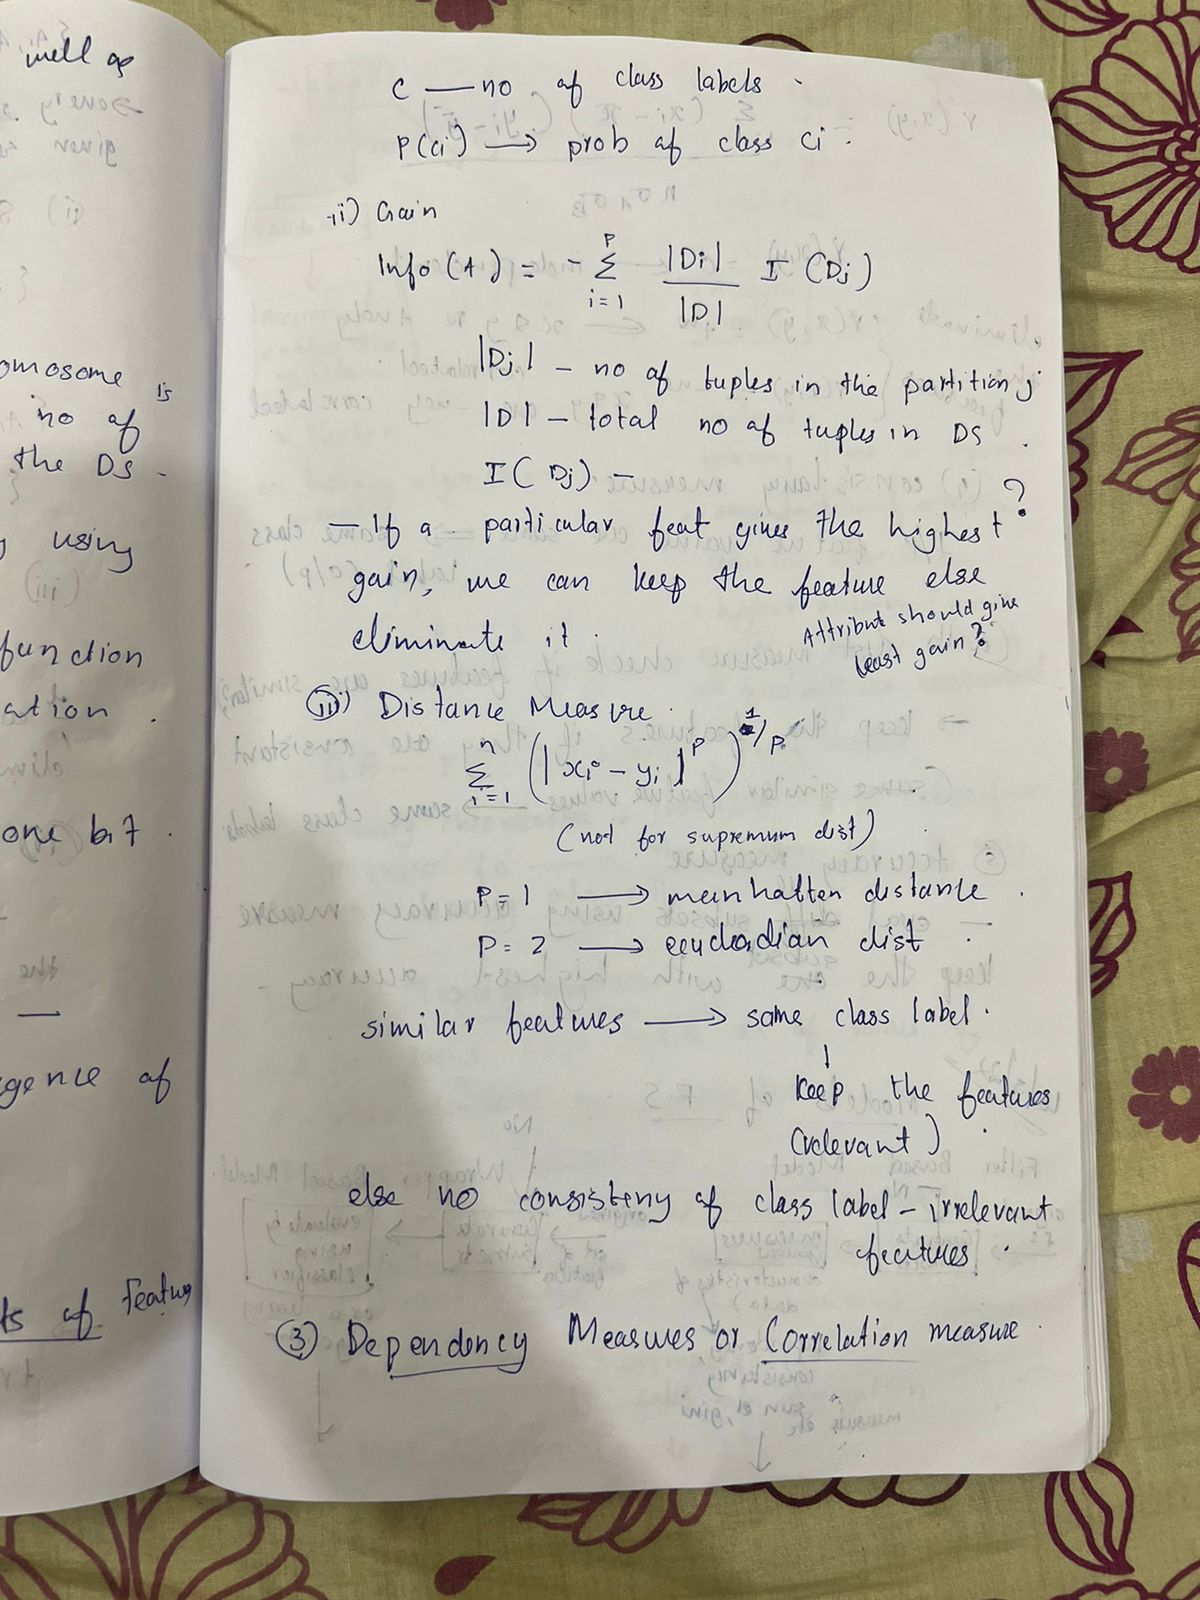 well as
omosome is
no of
the DS -
using
function
ation .
one bit .
gence of
ts of featur
c — no of class labels .
P(ci) → prob of class ci .
ii) Gain
Info (A) = - p Σ i=1 |Di| / |D| I (Dj)
|Dj| - no of tuples in the partition j
|D| - total no of tuples in DS .
I ( Dj ) -
?
- If a particular feat gives the highest
gain, we can keep the feature else
eliminate it .
Attribute should give
least gain?
iii) Distance Measure .
n Σ i=1 (|xi - yi|^p)^1/p
(not for supremum dist)
P = 1 → manhatten distance .
P = 2 → eeucladian dist .
similar features → same class label .
↓
keep the features
(relevant) .
else no consisteny of class label - irrelevant
features .
(3) Dependency Measures or Correlation measure .